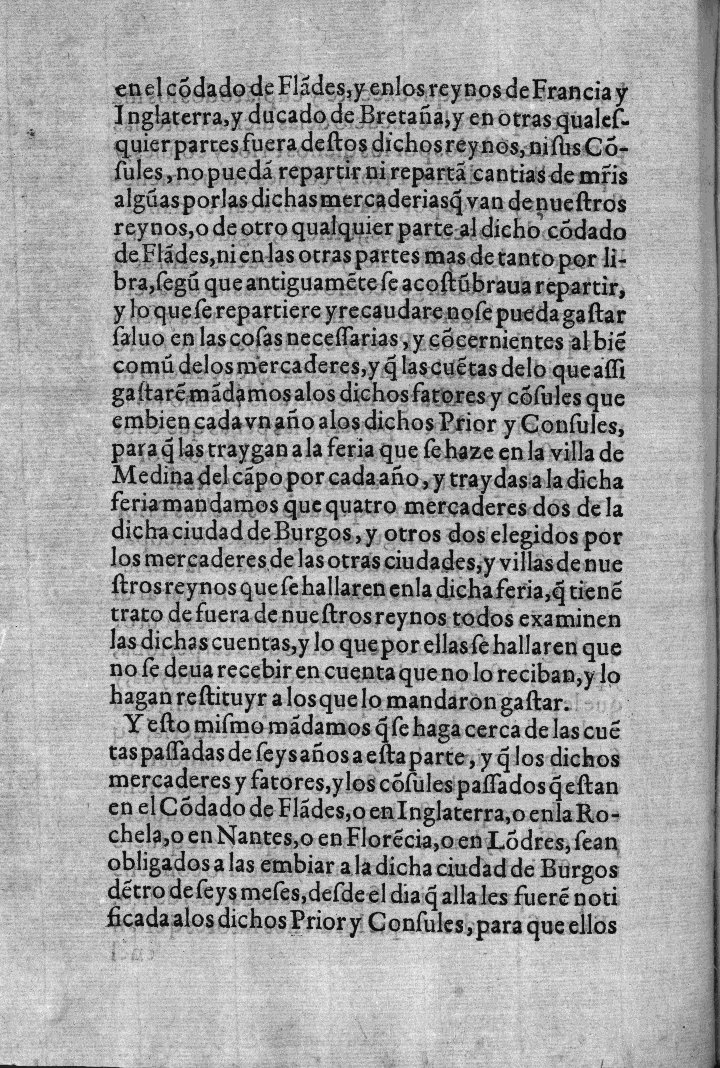 en el cõdado de Flãdes, y enlos reynos de Francia y
Inglaterra, y ducado de Bretaña, y en otras qualeſ-
quier partes fuera deſtos dichos reynos, ni ſus Cõ-
ſules, no puedã repartir ni repartã cantias de mr̃is
algũas por las dichas mercaderias q̃ van de nueſtros
reynos, o de otro qualquier parte al dicho cõdado
de Flãdes, ni en las otras partes mas de tanto por li-
bra, ſegũ que antiguamẽte ſe acoſtũbraua repartir,
y lo que ſe repartiere y recaudare no ſe pueda gaſtar
ſaluo en las coſas neceſſarias, y cõcernientes al biẽ
comũ delos mercaderes, y q̃ las cuẽtas delo que aſſi
gaſtarẽ mãdamos alos dichos fatores y cõſules que
embien cada vn año alos dichos Prior y Conſules,
para q̃ las traygan a la feria que ſe haze en la villa de
Medina del cãpo por cada año, y traydas a la dicha
feria mandamos que quatro mercaderes dos de la
dicha ciudad de Burgos, y otros dos elegidos por
los mercaderes de las otras ciudades, y villas de nue
ſtros reynos que ſe hallaren enla dicha feria, q̃ tienẽ
trato de fuera de nueſtros reynos todos examinen
las dichas cuentas, y lo que por ellas ſe hallaren que
no ſe deua recebir en cuenta que no lo reciban, y lo
hagan reſtituyr a los que lo mandaron gaſtar.
Y eſto miſmo mãdamos q̃ ſe haga cerca de las cuẽ
tas paſſadas de ſeys años a eſta parte, y q̃ los dichos
mercaderes y fatores, y los cõſules paſſados q̃ eſtan
en el Cõdado de Flãdes, o en Inglaterra, o en la Ro-
chela, o en Nantes, o en Florẽcia, o en Lõdres, ſean
obligados a las embiar a la dicha ciudad de Burgos
dẽtro de ſeys meſes, deſde el dia q̃ alla les fuerẽ noti
ficada alos dichos Prior y Conſules, para que ellos